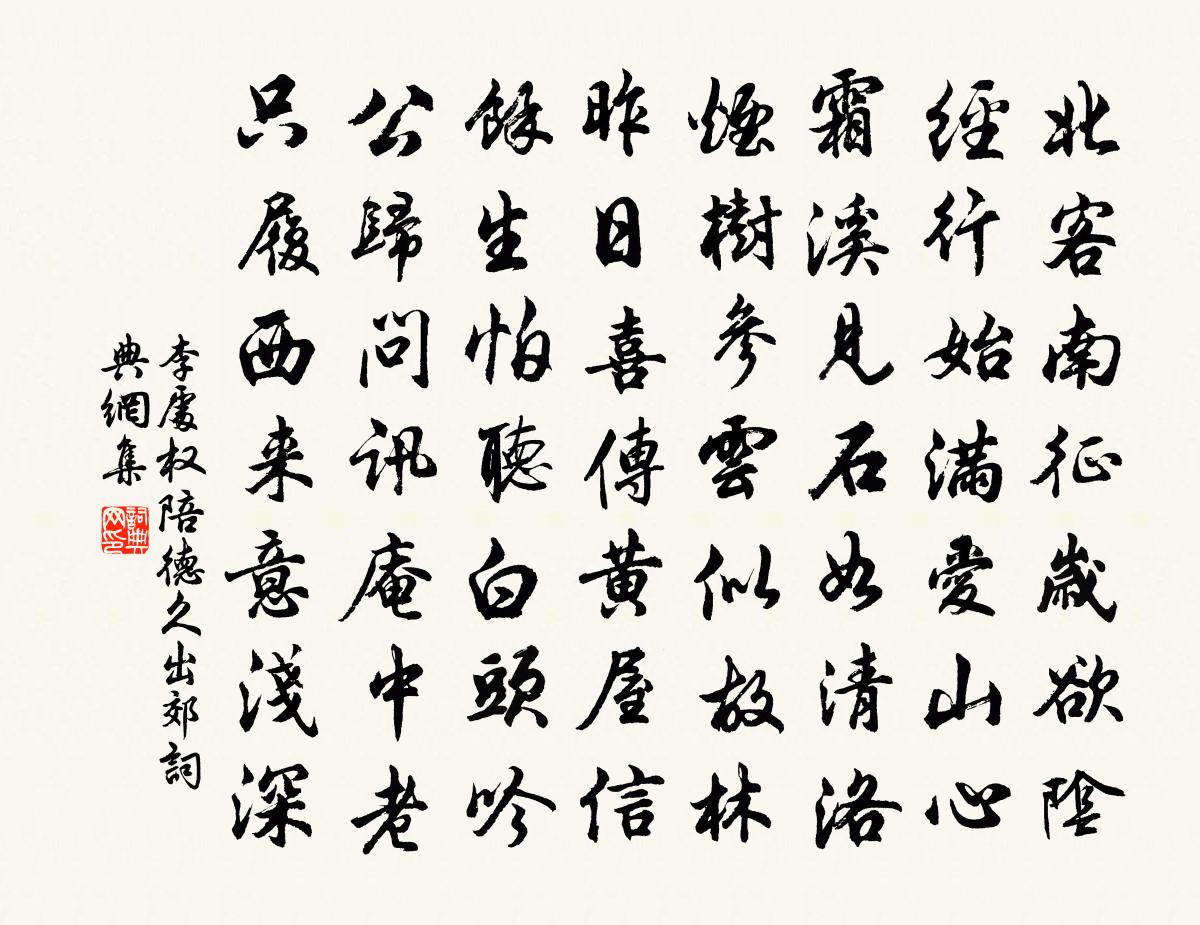 北客南征歲欲陰
經行始滿愛山心
霜溪見石如清洛
煙樹參雲似故林
昨日喜傳黃屋信
餘生怕聽白頭吟
公歸問訊庵中老
只履西来意淺深
李處权陪德久出郊詞
典網集
詞典网印